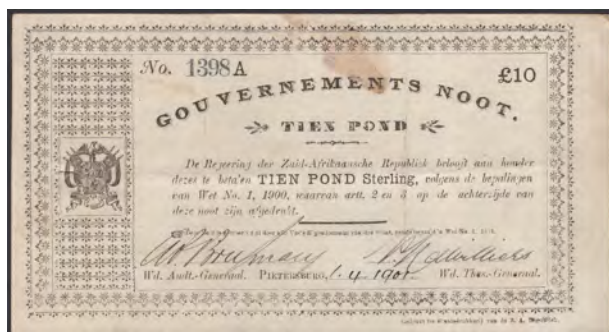 No. 1398 A £10
GOUVERNEMENTS NOOT.
TIEN POND
De Regeering der Zuid-Afrikaansche Republiek belooft aan houder
dezes te betalen TIEN POND Sterling, volgens de bepalingen
van Wet No. 1, 1900, waarvan artt. 2 en 3 op de achterzijde van
deze noot zijn afgedrukt.
Wd. Audt.-Generaal. PIETERSBURG, 1.4.1901 Wd. Thes.-Generaal.